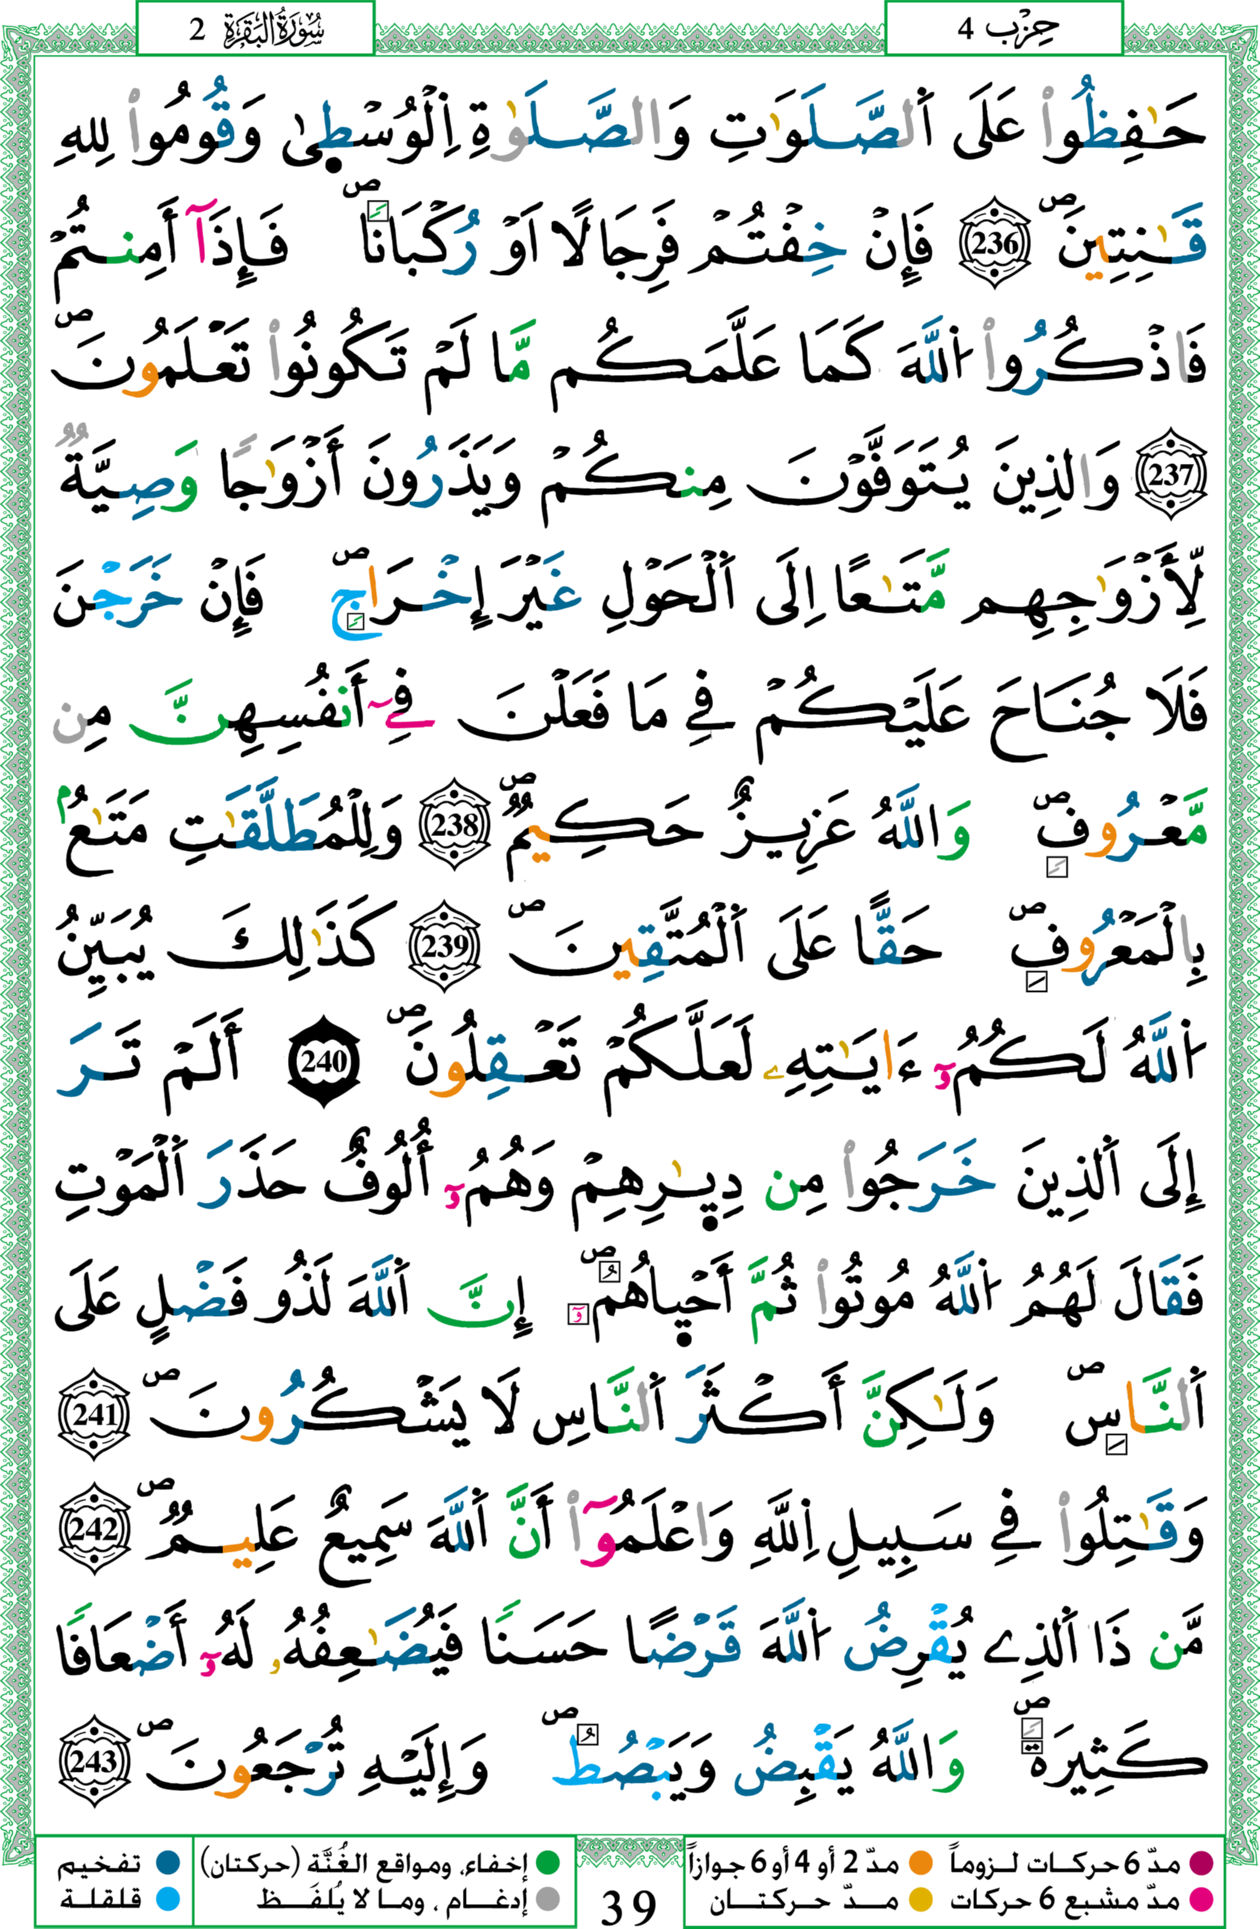 حِزْب 4
سُورَةُ الْبَقَرَةِ 2
حَٰفِظُواْ عَلَى اَ۬لصَّلَوَٰتِ وَالصَّلَوٰةِ اِ۬لْوُسْط۪يٰ وَقُومُواْ لِلهِ
قَٰنِتِينَۖ 236 فَإِنْ خِفْتُمْ فَرِجَالًا اَوْ رُكْبَاناٗۖ فَإِذَآ أَمِنتُمْ
فَاذْكُرُواْ اُ۬للَّهَ كَمَا عَلَّمَكُم مَّا لَمْ تَكُونُواْ تَعْلَمُونَۖ
237 وَالذِينَ يُتَوَفَّوْنَ مِنكُمْ وَيَذَرُونَ أَزْوَٰجاٗ وَصِيَّةٞ
لِّأَزْوَٰجِهِم مَّتَٰعًا اِلَى اَ۬لْحَوْلِ غَيْرَ إِخْرَاجٖۖ فَإِنْ خَرَجْنَ
فَلَا جُنَاحَ عَلَيْكُمْ فِے مَا فَعَلْنَ فِےٓ أَنفُسِهِنَّ مِن
مَّعْرُوفٖۖ وَاللَّهُ عَزِيزٌ حَكِيمٞۖ 238 وَلِلْمُطَلَّقَٰتِ مَتَٰعُۢ
بِالْمَعْرُوفِۖ حَقًّا عَلَى اَ۬لْمُتَّقِينَۖ 239 كَذَٰلِكَ يُبَيِّنُ
اُ۬للَّهُ لَكُمُۥٓ ءَايَٰتِهِۦ لَعَلَّكُمْ تَعْقِلُونَۖ 240 أَلَمْ تَرَ
إِلَى اَ۬لذِينَ خَرَجُواْ مِن دِيٰ۪رِهِمْ وَهُمُۥٓ أُلُوفٌ حَذَرَ اَ۬لْمَوْتِ
فَقَالَ لَهُمُ اُ۬للَّهُ مُوتُواْ ثُمَّ أَحْي۪اهُمُۥٓۖ إِنَّ اَ۬للَّهَ لَذُو فَضْلٍ عَلَى
اَ۬لنَّاسِۖ وَلَٰكِنَّ أَكْثَرَ اَ۬لنَّاسِ لَا يَشْكُرُونَۖ 241
وَقَٰتِلُواْ فِے سَبِيلِ اِ۬للَّهِ وَاعْلَمُوٓاْ أَنَّ اَ۬للَّهَ سَمِيعٌ عَلِيمٞۖ 242
مَّن ذَا اَ۬لذِے يُقْرِضُ اُ۬للَّهَ قَرْضًا حَسَناٗ فَيُضَٰعِفُهُۥ لَهُۥٓ أَضْعَافاٗ
كَثِيرَةٗۖ وَاللَّهُ يَقْبِضُ وَيَبْصُۜطُۖ وَإِلَيْهِ تُرْجَعُونَۖ 243
مدّ 6 حركات لزوماً مدّ 2 أو 4 أو 6 جوازاً
مدّ مشبع 6 حركات مدّ حركتان
39
إخفاء، ومواقع الغُنَّة (حركتان) تفخيم
إدغام ، وما لا يُلفَظ قلقلة